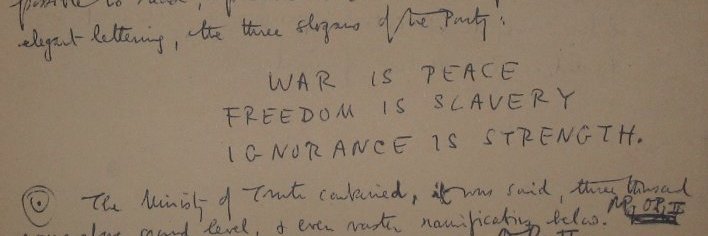 possible to read,
elegant lettering, the three slogans of the Party:
WAR IS PEACE
FREEDOM IS SLAVERY
IGNORANCE IS STRENGTH.
The Ministry of Truth contained, it was said, three thousand
ground level, & even vaster ramifications below.